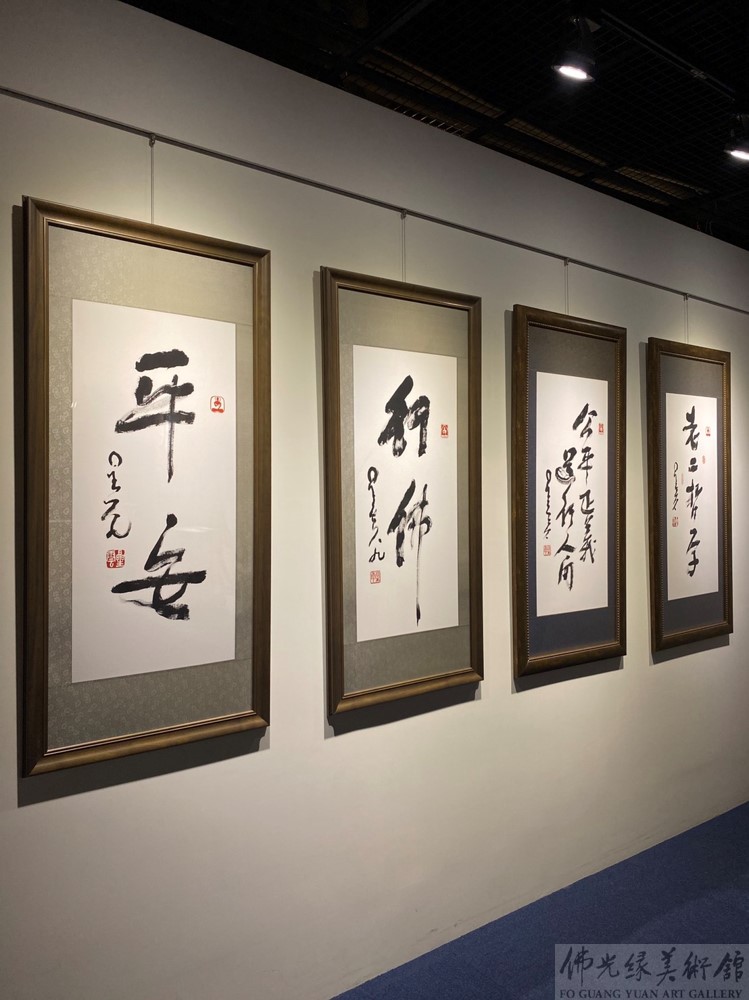 平安
星雲
行佛
星雲 八九
公平正義
行人間
星雲
老二哲學
星雲
佛光緣美術館
FO GUANG YUAN ART GALLERY